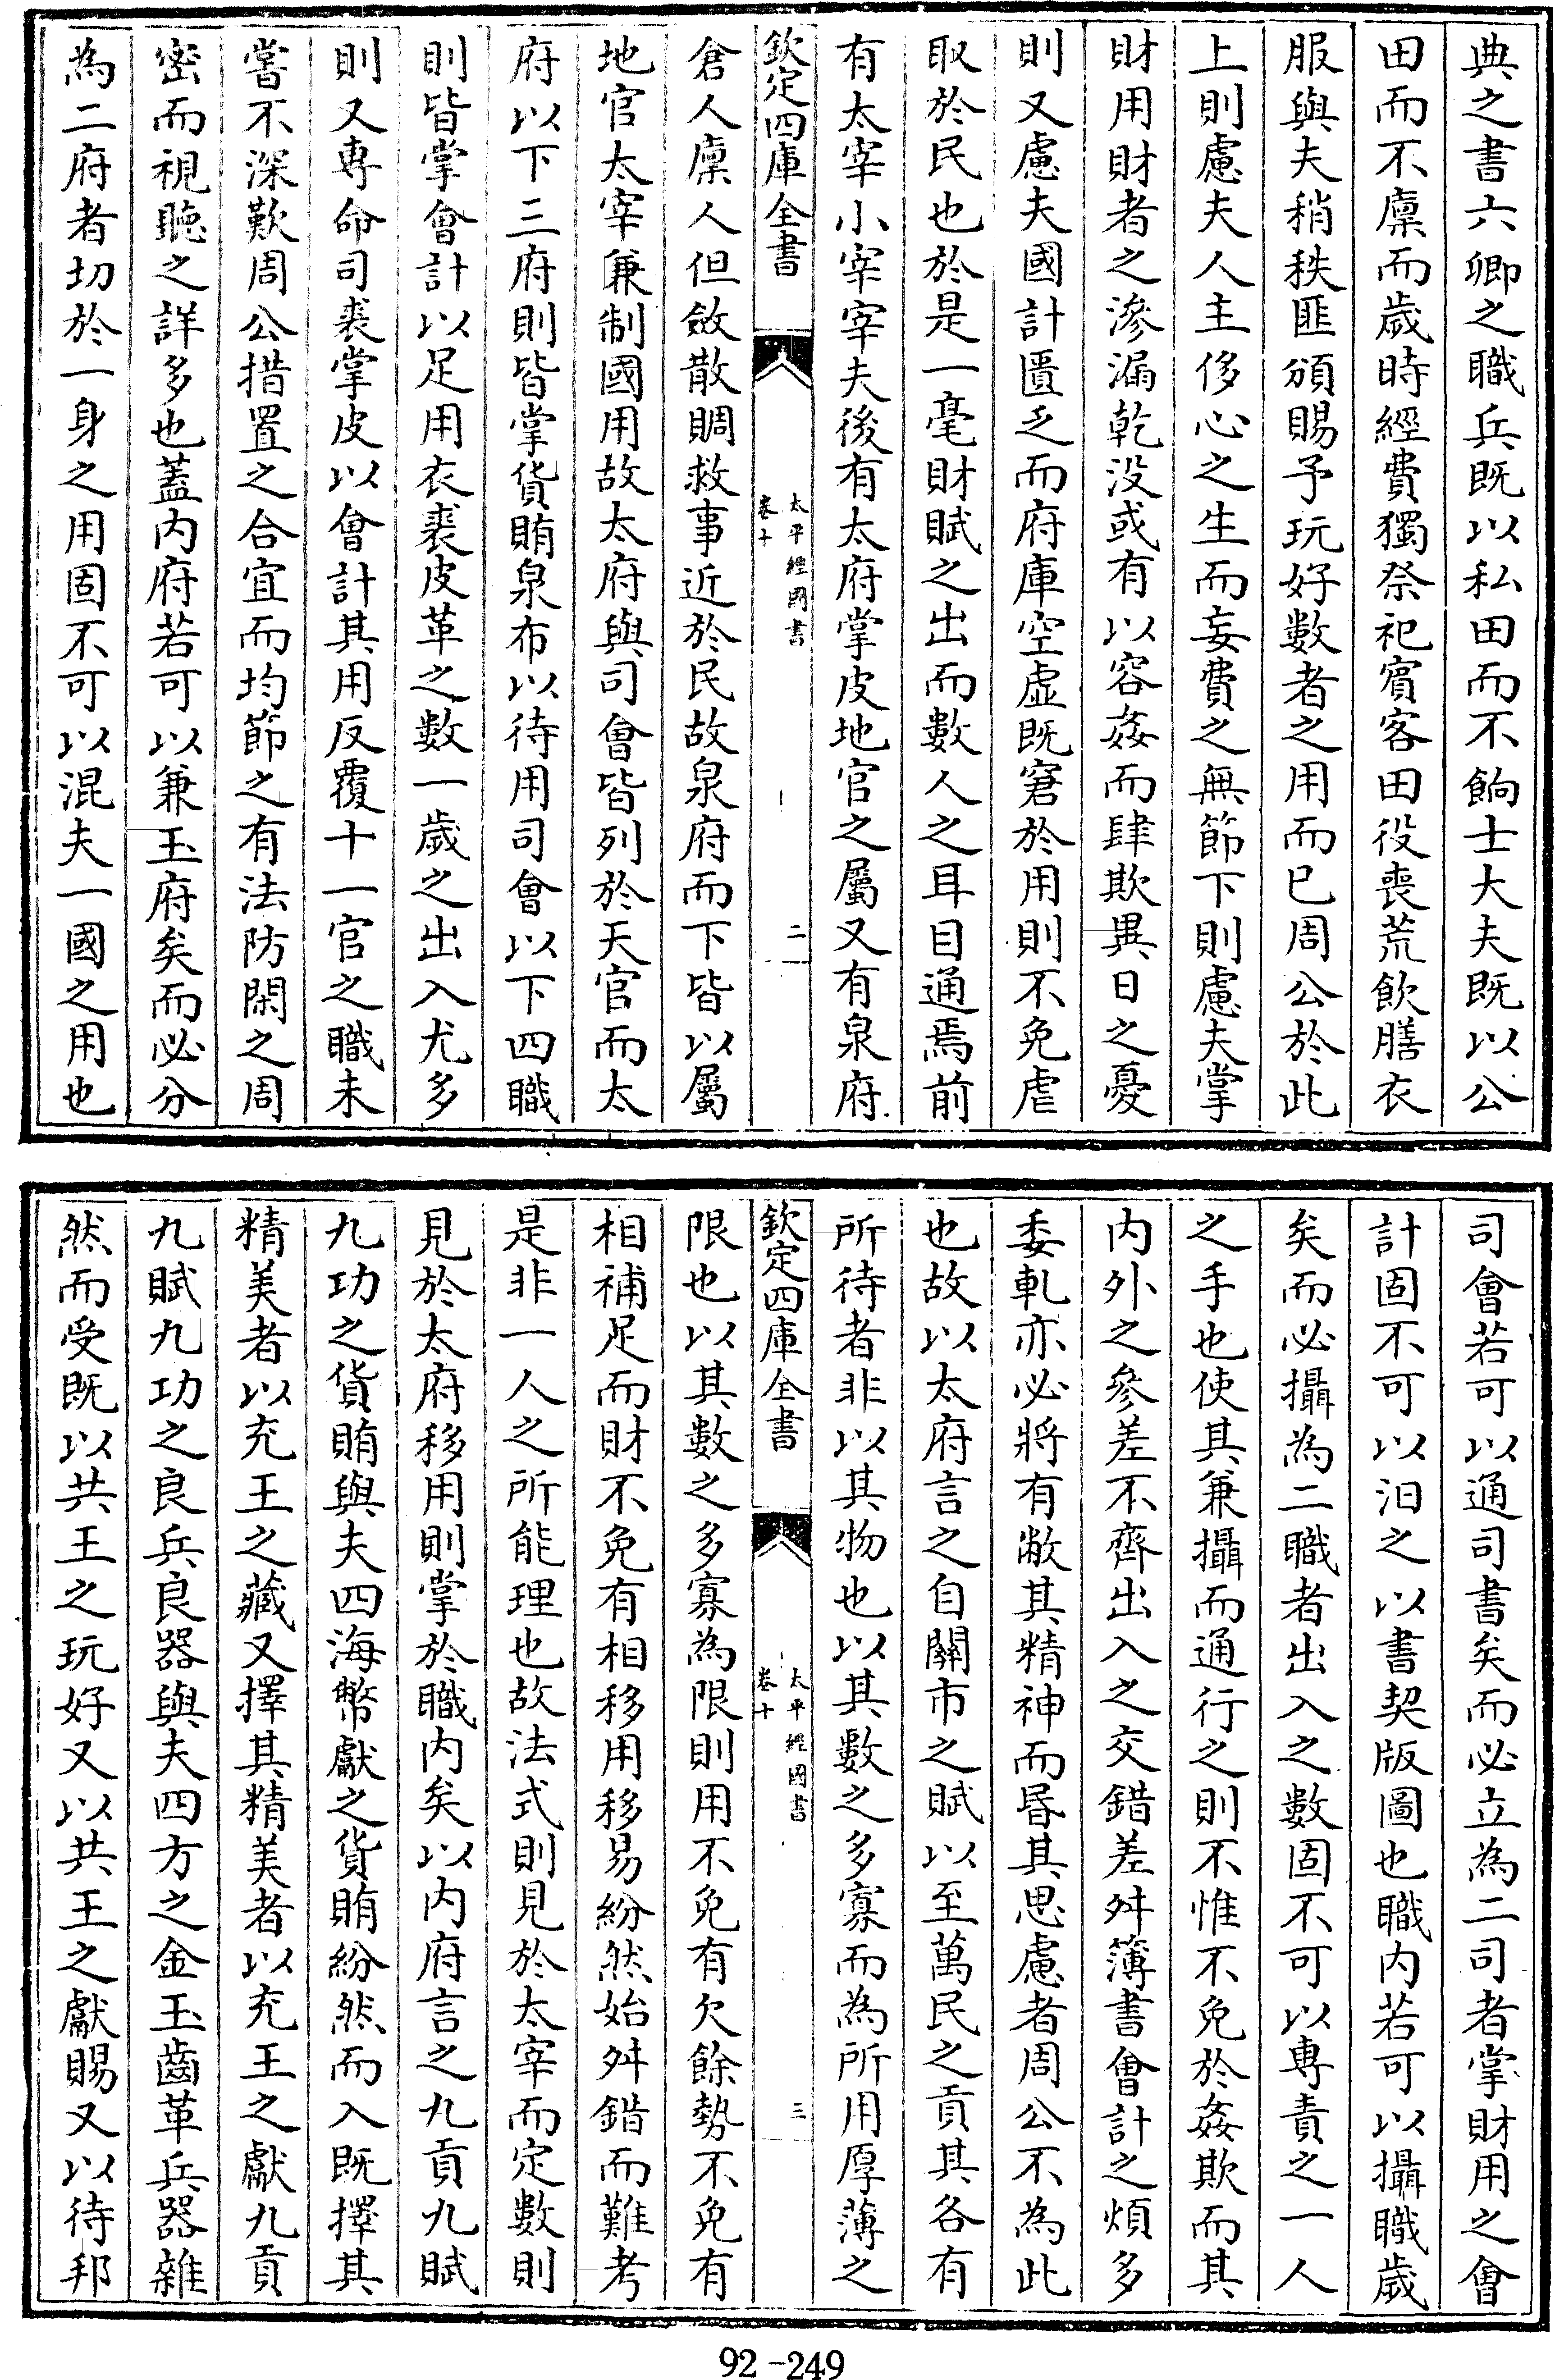 典之書六卿之職兵既以私田而不餉士大夫既以公
田而不廩而歲時經費獨祭祀賓客田役喪荒飲膳衣
服與夫稍秩匪頒賜予玩好數者之用而已周公於此
上則慮夫人主侈心之生而妄費之無節下則慮夫掌
財用財者之滲漏乾没或有以容姦而肆欺異日之憂
則又慮夫國計匱乏而府庫空虛既窘於用則不免虐
取於民也於是一毫財賦之出而數人之耳目通焉前
有太宰小宰宰夫後有太府掌皮地官之屬又有泉府
欽定四庫全書
太平經國書
卷十
二
倉人廩人但斂散賙救事近於民故泉府而下皆以屬
地官太宰兼制國用故太府與司會皆列於天官而太
府以下三府則皆掌貨賄泉布以待用司會以下四職
則皆掌會計以足用衣裘皮革之數一歲之出入尤多
則又專命司裘掌皮以會計其用反覆十一官之職未
嘗不深歎周公措置之合宜而均節之有法防閑之周
密而視聽之詳多也蓋内府若可以兼玉府矣而必分
為二府者切於一身之用固不可以混夫一國之用也
司會若可以通司書矣而必立為二司者掌財用之會
計固不可以汨之以書契版圖也職内若可以攝職歲
矣而必攝為二職者出入之數固不可以專責之一人
之手也使其兼攝而通行之則不惟不免於姦欺而其
内外之參差不齊出入之交錯差舛簿書會計之煩多
委軋亦必將有敝其精神而昏其思慮者周公不為此
也故以太府言之自關市之賦以至萬民之貢其各有
所待者非以其物也以其數之多寡而為所用厚薄之
欽定四庫全書
太平經國書
卷十
三
限也以其數之多寡為限則用不免有欠餘勢不免有
相補足而財不免有相移用移易紛然始舛錯而難考
是非一人之所能理也故法式則見於太宰而定數則
見於太府移用則掌於職内矣以内府言之九貢九賦
九功之貨賄與夫四海幣獻之貨賄紛然而入既擇其
精美者以充王之藏又擇其精美者以充王之獻九貢
九賦九功之良兵良器與夫四方之金玉齒革兵器雜
然而受既以共王之玩好又以共王之獻賜又以待邦
92-249